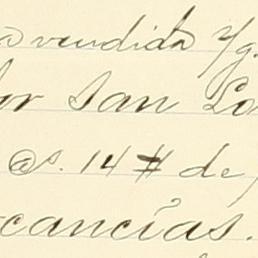 a vendida y/g.
or San Lo
@s. 14 # de
cancías.